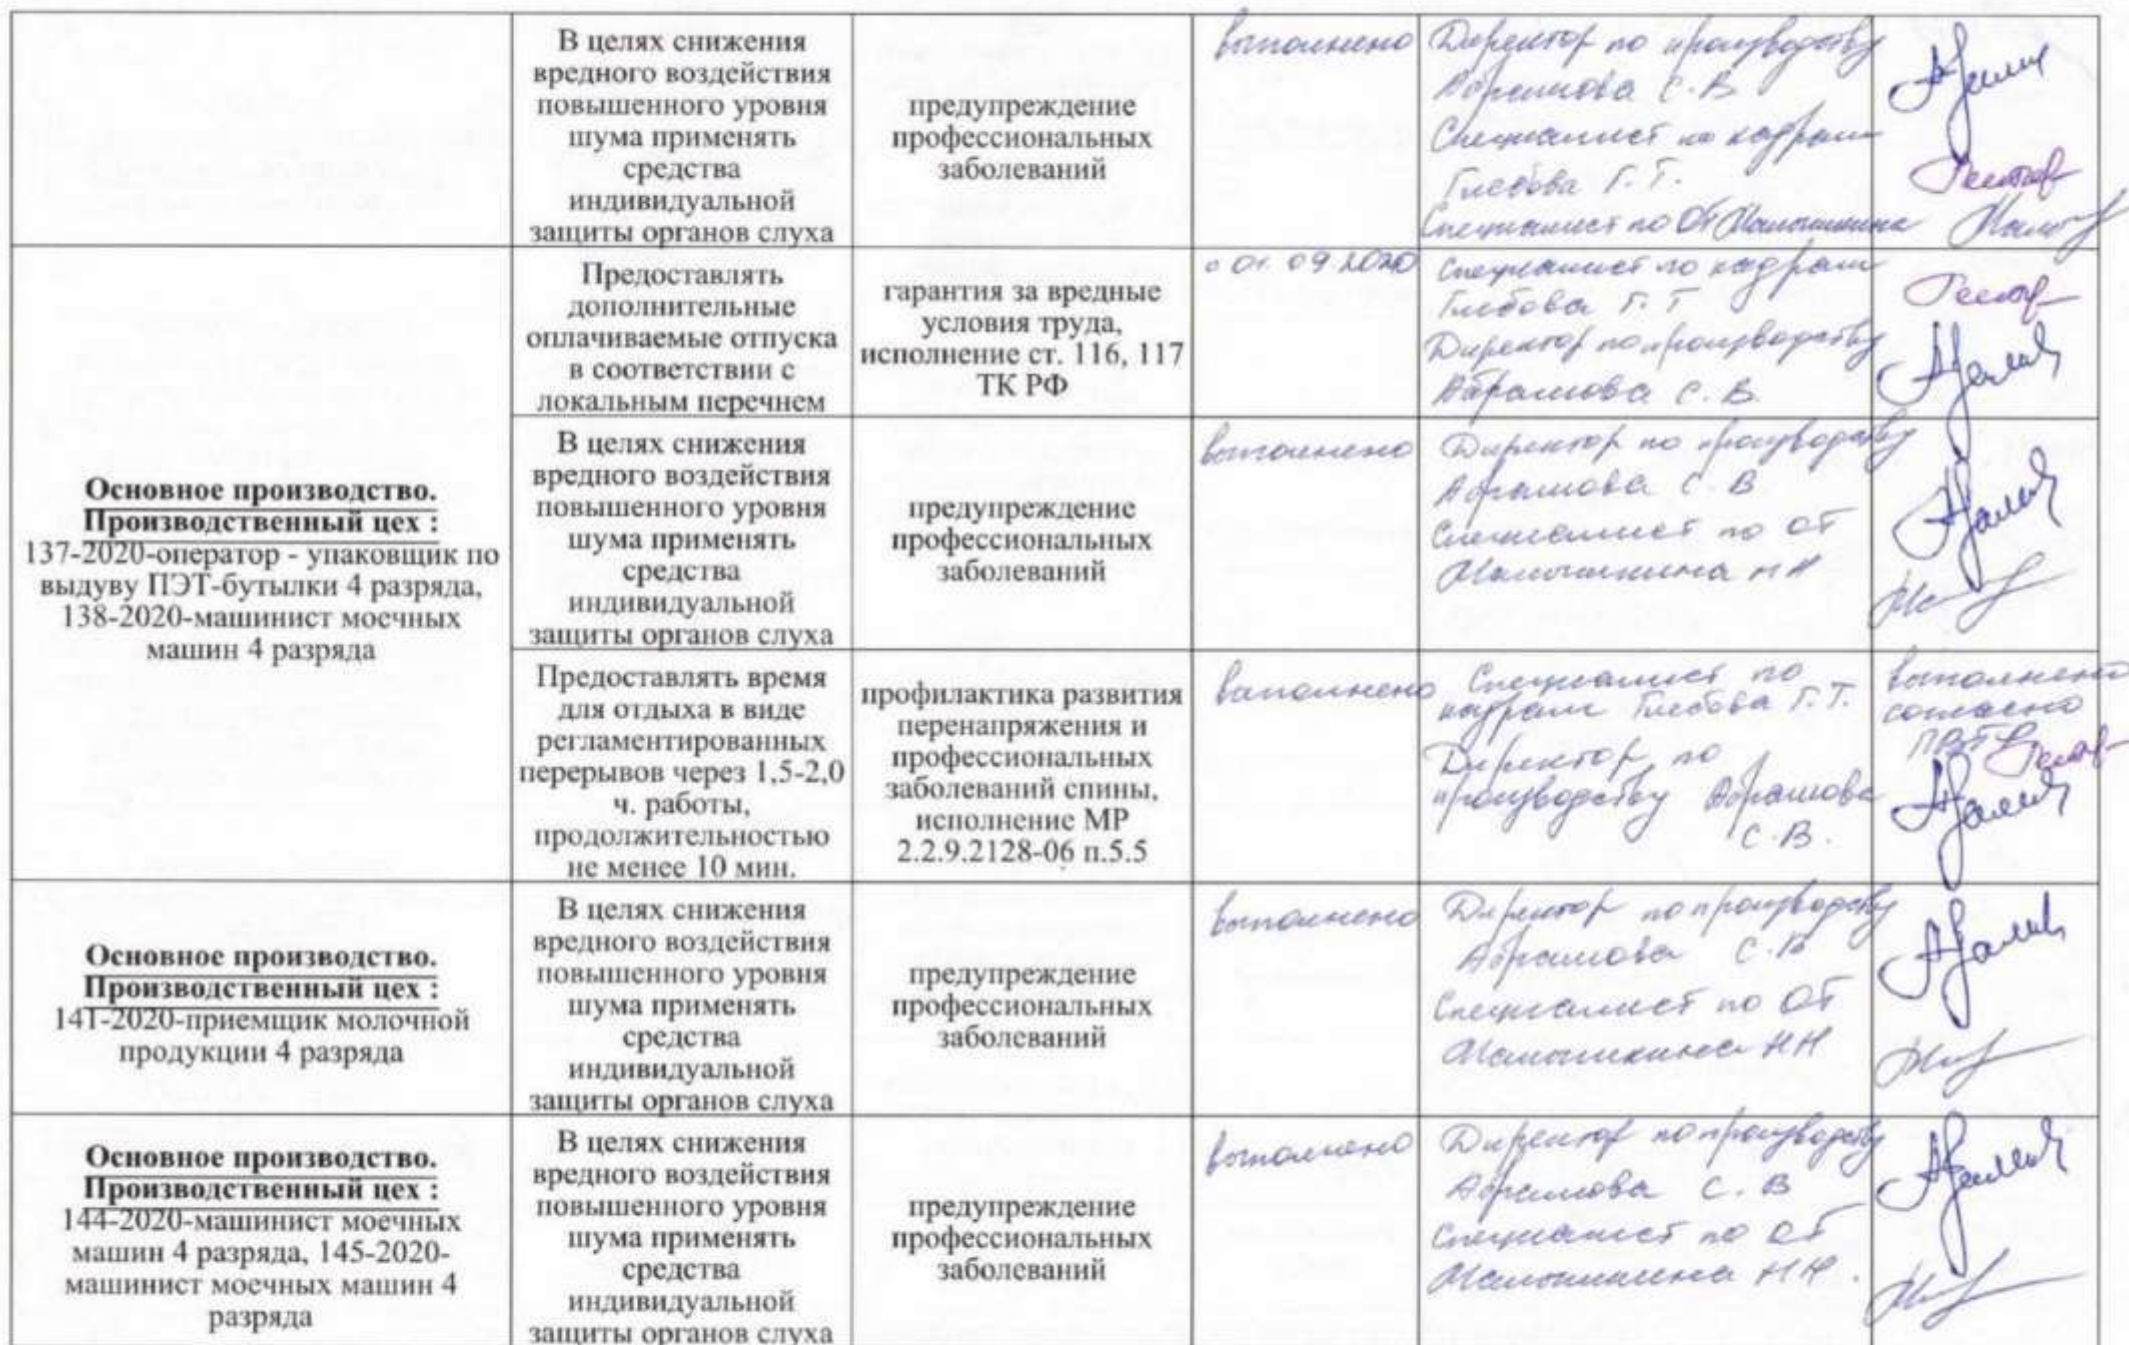 В целях снижения
вредного воздействия
повышенного уровня
шума применять
средства
индивидуальной
защиты органов слуха
предупреждение
профессиональных
заболеваний
выполнено
Директор по производству
Абрамова С.В
Специалист по кадрам
Глебова Г.Т.
Специалист по ОТ Малышкина
Основное производство.
Производственный цех :
137-2020-оператор - упаковщик по
выдуву ПЭТ-бутылки 4 разряда,
138-2020-машинист моечных
машин 4 разряда
Предоставлять
дополнительные
оплачиваемые отпуска
в соответствии с
локальным перечнем
гарантия за вредные
условия труда,
исполнение ст. 116, 117
ТК РФ
с 01.09.2020
Специалист по кадрам
Глебова Г.Т
Директор по производству
Абрамова С.В.
В целях снижения
вредного воздействия
повышенного уровня
шума применять
средства
индивидуальной
защиты органов слуха
предупреждение
профессиональных
заболеваний
выполнено
Директор по производству
Абрамова С.В
Специалист по ОТ
Малышкина Н Н
Предоставлять время
для отдыха в виде
регламентированных
перерывов через 1,5-2,0
ч. работы,
продолжительностью
не менее 10 мин.
профилактика развития
перенапряжения и
профессиональных
заболеваний спины,
исполнение МР
2.2.9.2128-06 п.5.5
выполнено
Специалист по
кадрам Глебова Г.Т.
Директор по
производству Абрамова
С.В.
выполнено
согласно
Основное производство.
Производственный цех :
141-2020-приемщик молочной
продукции 4 разряда
В целях снижения
вредного воздействия
повышенного уровня
шума применять
средства
индивидуальной
защиты органов слуха
предупреждение
профессиональных
заболеваний
выполнено
Директор по производству
Абрамова С.В
Специалист по ОТ
Малышкина НН
Основное производство.
Производственный цех :
144-2020-машинист моечных
машин 4 разряда, 145-2020-
машинист моечных машин 4
разряда
В целях снижения
вредного воздействия
повышенного уровня
шума применять
средства
индивидуальной
защиты органов слуха
предупреждение
профессиональных
заболеваний
выполнено
Директор по производству
Абрамова С.В
Специалист по ОТ
Малышкина НН.